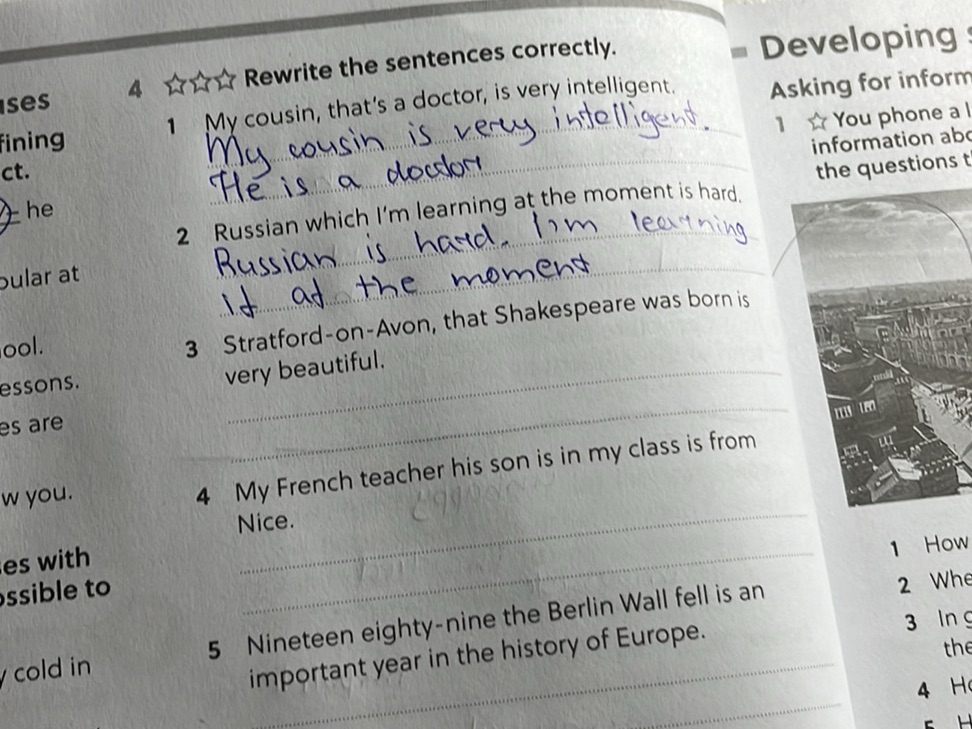 uses
fining
ct.
he
pular at
ool.
essons.
es are
w you.
es with
ossible to
y cold in
4 ☆☆☆ Rewrite the sentences correctly.
1 My cousin, that's a doctor, is very intelligent.
My cousin is very intelligent.
He is a doctor
2 Russian which I'm learning at the moment is hard.
Russian is hard. I'm learning
it at the moment
3 Stratford-on-Avon, that Shakespeare was born is
very beautiful.
4 My French teacher his son is in my class is from
Nice.
5 Nineteen eighty-nine the Berlin Wall fell is an
important year in the history of Europe.
Developing
Asking for inform
1 ☆ You phone a
information abo
the questions t
1 How
2 Whe
3 In g
the
4 Ho
5 H